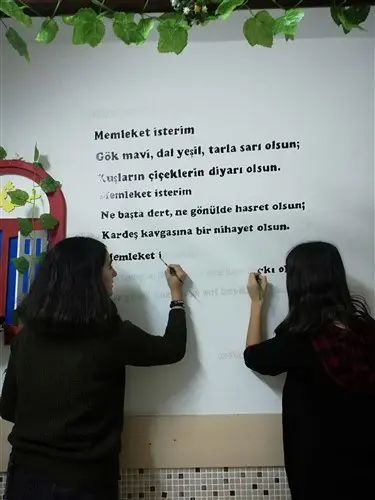 Memleket isterim
Gök mavi, dal yeşil, tarla sarı olsun;
Kuşların çiçeklerin diyarı olsun.
Memleket isterim
Ne başta dert, ne gönülde hasret olsun;
Kardeş kavgasına bir nihayet olsun.
Memleket i